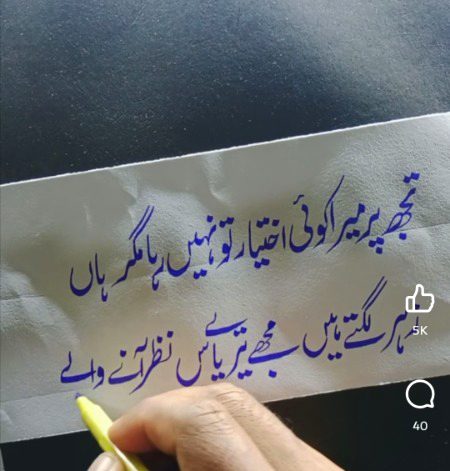 تجھ پر میرا کوئی اختیار تو نہیں رہا مگر ہاں
زہر لگتے ہیں مجھے تیرے پاس نظر آنے والے
5K
40